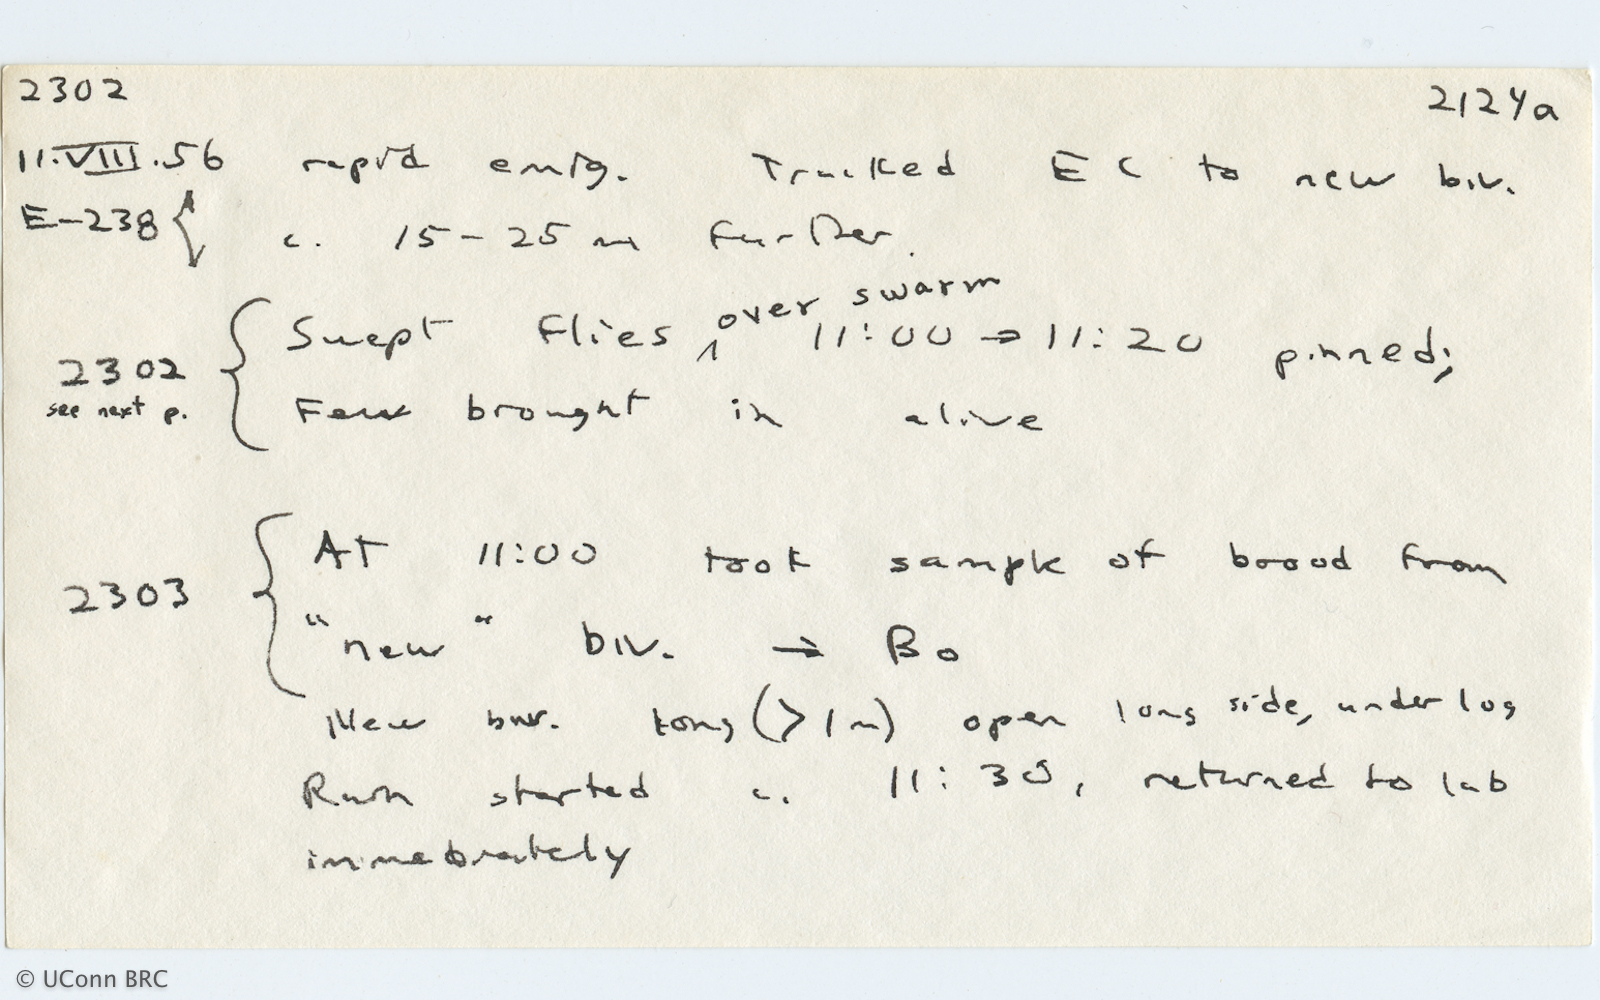 2302 2124a
11.VIII.56 rapid emig. Tracked EC to new biv.
E-238 { c. 15-25 m further.
2302 { Swept flies ^ over swarm 11:00 → 11:20 pinned;
see next p. Few brought in alive
2303 { At 11:00 took sample of brood from
"new" biv. → Bo
New biv. long (>1m) open long side, under log
Rain started c. 11:30, returned to lab
immediately
© UConn BRC